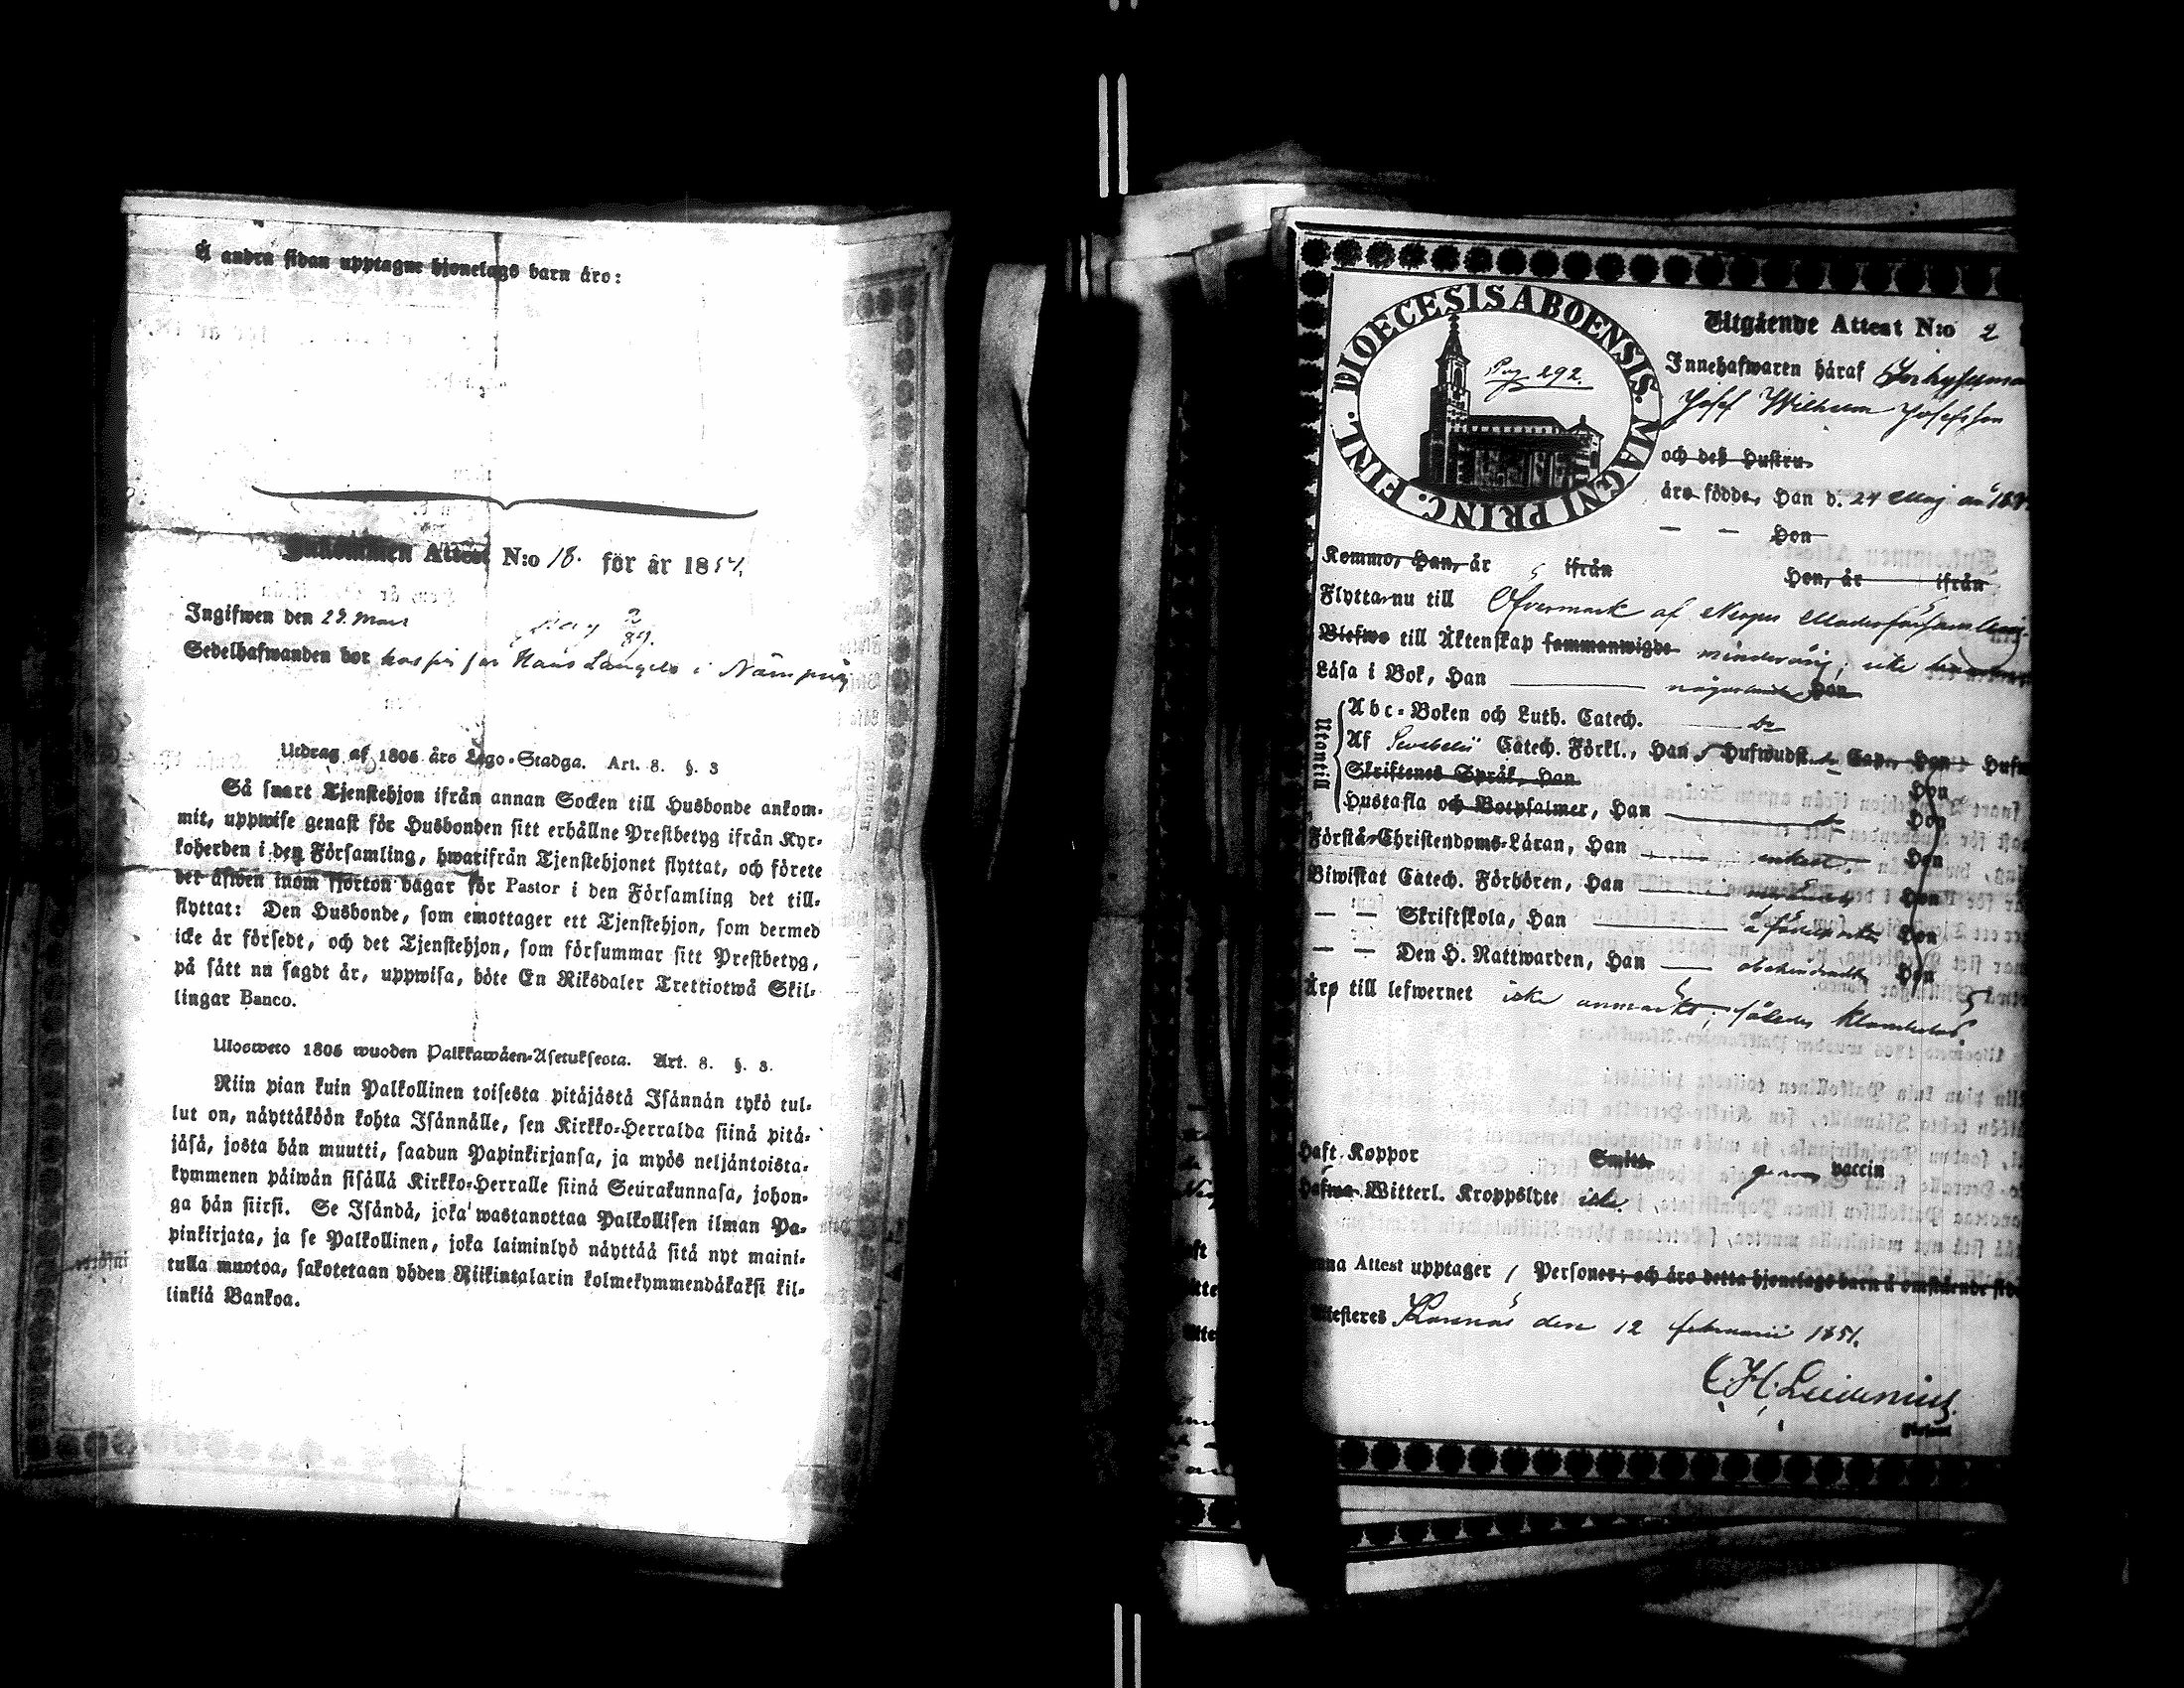 Å andra sidan upptagne hjonelags barn äro:
Inkommen Attest N:o 18. för år 1851.
Ingifwen den 29. Mars
Sedelhafwanden bor hos Hans Långels i Nämpnäs
Utdrag af 1805 års Lego-Stadga. Art. 8. §. 3
Så snart Tjenstehjon ifrån annan Socken till Husbonde ankom-
mit, uppwise genast för Husbonden sitt erhållne Prestbetyg ifrån Kyr-
koherden i den Församling, hwarifrån Tjenstehjonet flyttat, och förete
det äfwen inom fjorton dagar för Pastor i den Församling det till-
flyttat: Den Husbonde, som emottager ett Tjenstehjon, som dermed
icke är försedt, och det Tjenstehjon, som försummar sitt Prestbetyg,
på sätt nu sagdt är, uppwisa, böte En Riksdaler Trettiotwå Skil-
lingar Banco.
Ulosweto 1805 wuoden Palkkawäen-Asetuksesta. Art. 8. §. 3.
Niin pian kuin Palkollinen toisesta pitäjästä Isännän tykö tul-
lut on, näyttäköön kohta Isännälle, sen Kirkko-Herralda siinä pitä-
jäsä, josta hän muutti, saadun Papinkirjansa, ja myös neljäntoista-
kymmenen päiwän sisällä Kirkko-Herralle siinä Seurakunnasa, johon-
ga hän siirsi. Se Isändä, joka wastanottaa Palkollisen ilman Pa-
pinkirjata, ja se Palkollinen, joka laiminlyö näyttää sitä nyt maini-
tulla muotoa, sakotetaan yhden Riikintalarin kolmekymmendäkaksi kil-
linkiä Bankoa.
DIOECESIS ABOENSIS. MAGNI PRINC. FINL.
Pag 292.
Utgående Attest N:o 2
Innehafwaren häraf
Josef Wilhelm Josefsson
och deß Hustru
äro födde, Han d. 24 Maj
— — Hon
Kommo, Han, år ifrån Hon, år ifrån
Flytta nu till Öfvermark af Nerpes Moderförsamling
Blefwo till Äktenskap sammanwigde minderårig; icke
Läsa i Bok, Han någorlunda Hon
Utantill
Abc-Boken och Luth. Catech. do
Af Svebelii Catech. Förkl., Han 5 Hufwudst. Cap. Hon
Skriftenes Språk, Han Hon
Hustafla och Botpsalmer, Han Hon
Förstå Christendoms-Läran, Han enkelt Hon
Biwistat Catech. Förhören, Han Hon
— — Skriftskola, Han Hon
— — Den H. Nattwarden, Han obekandt Hon
Äro till lefwernet icke anmärkt; således klanderlös.
Haft Koppor Smitt. genom vaccin
Hafwa Witterl. Kroppslyte icke.
Attest upptager 1 Personer; och äro detta hjonelags barn å omstående sida
Korsnäs den 12 februarii 1851.